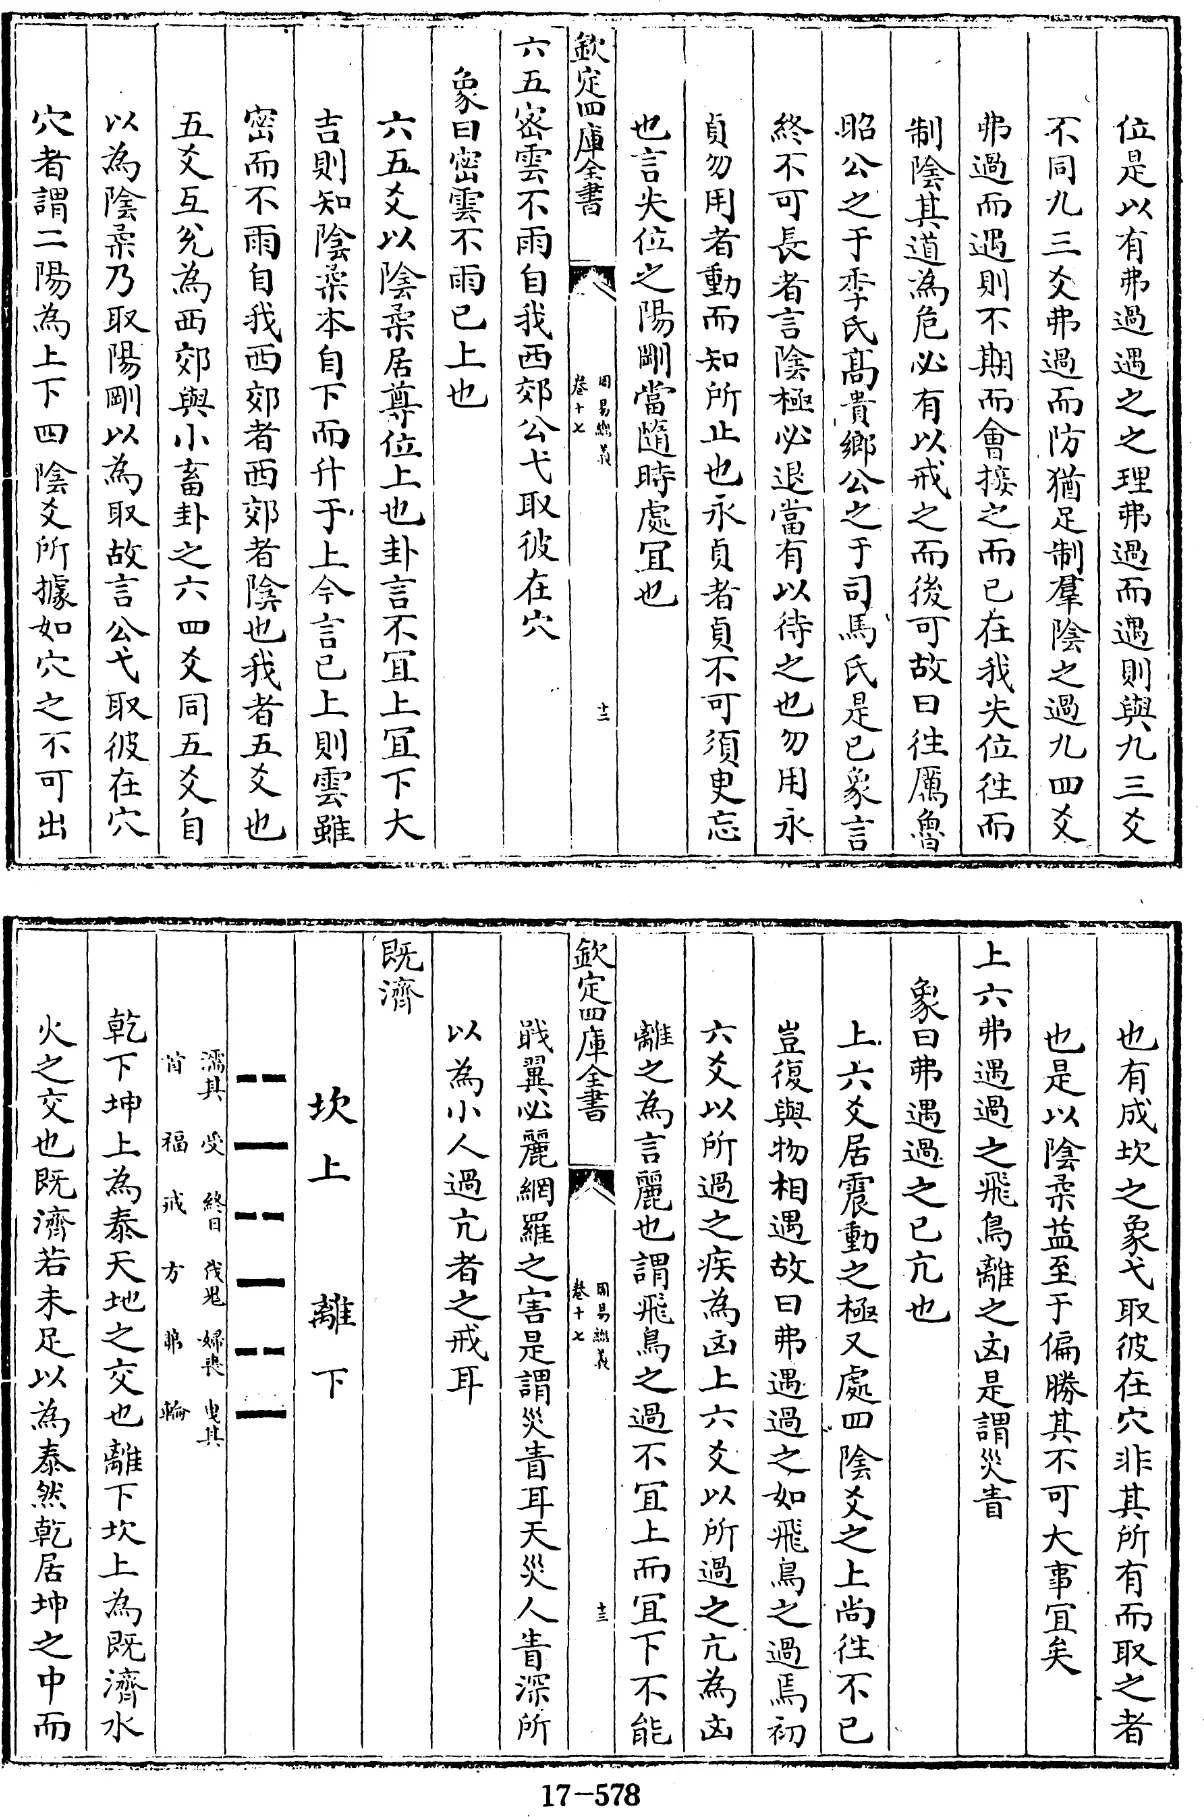 位是以有弗過遇之之理弗過而遇則與九三爻
不同九三爻弗過而防猶足制羣陰之過九四爻
弗過而遇則不期而會接之而已在我失位徃而
制陰其道為危必有以戒之而後可故曰往厲魯
昭公之于季氏髙貴鄉公之于司馬氏是已象言
終不可長者言陰極必退當有以待之也勿用永
貞勿用者動而知所止也永貞者貞不可須臾忘
也言失位之陽剛當隨時處冝也
欽定四庫全書
周易總義
卷十七
十二
六五密雲不雨自我西郊公弋取彼在穴
象曰密雲不雨已上也
六五爻以陰柔居尊位上也卦言不冝上冝下大
吉則知陰柔本自下而升于上今言已上則雲雖
密而不雨自我西郊者西郊者陰也我者五爻也
五爻互兊為西郊與小畜卦之六四爻同五爻自
以為陰柔乃取陽剛以為取故言公弋取彼在穴
穴者謂二陽為上下四陰爻所據如穴之不可出
也有成坎之象弋取彼在穴非其所有而取之者
也是以陰柔益至于偏勝其不可大事宜矣
上六弗遇過之飛鳥離之凶是謂災眚
象曰弗遇過之已亢也
上六爻居震動之極又處四陰爻之上尚徃不已
豈復與物相遇故曰弗遇過之如飛鳥之過焉初
六爻以所過之疾為凶上六爻以所過之亢為凶
離之為言麗也謂飛鳥之過不冝上而冝下不能
欽定四庫全書
周易總義
卷十七
十三
戢翼必麗網羅之害是謂災眚耳天災人眚深所
以為小人過亢者之戒耳
既濟
坎上 離下
濡其 受 終日 伐鬼 婦喪 曳其
首 福 戒 方 茀 輪
乾下坤上為泰天地之交也離下坎上為既濟水
火之交也既濟若未足以為泰然乾居坤之中而
17-578